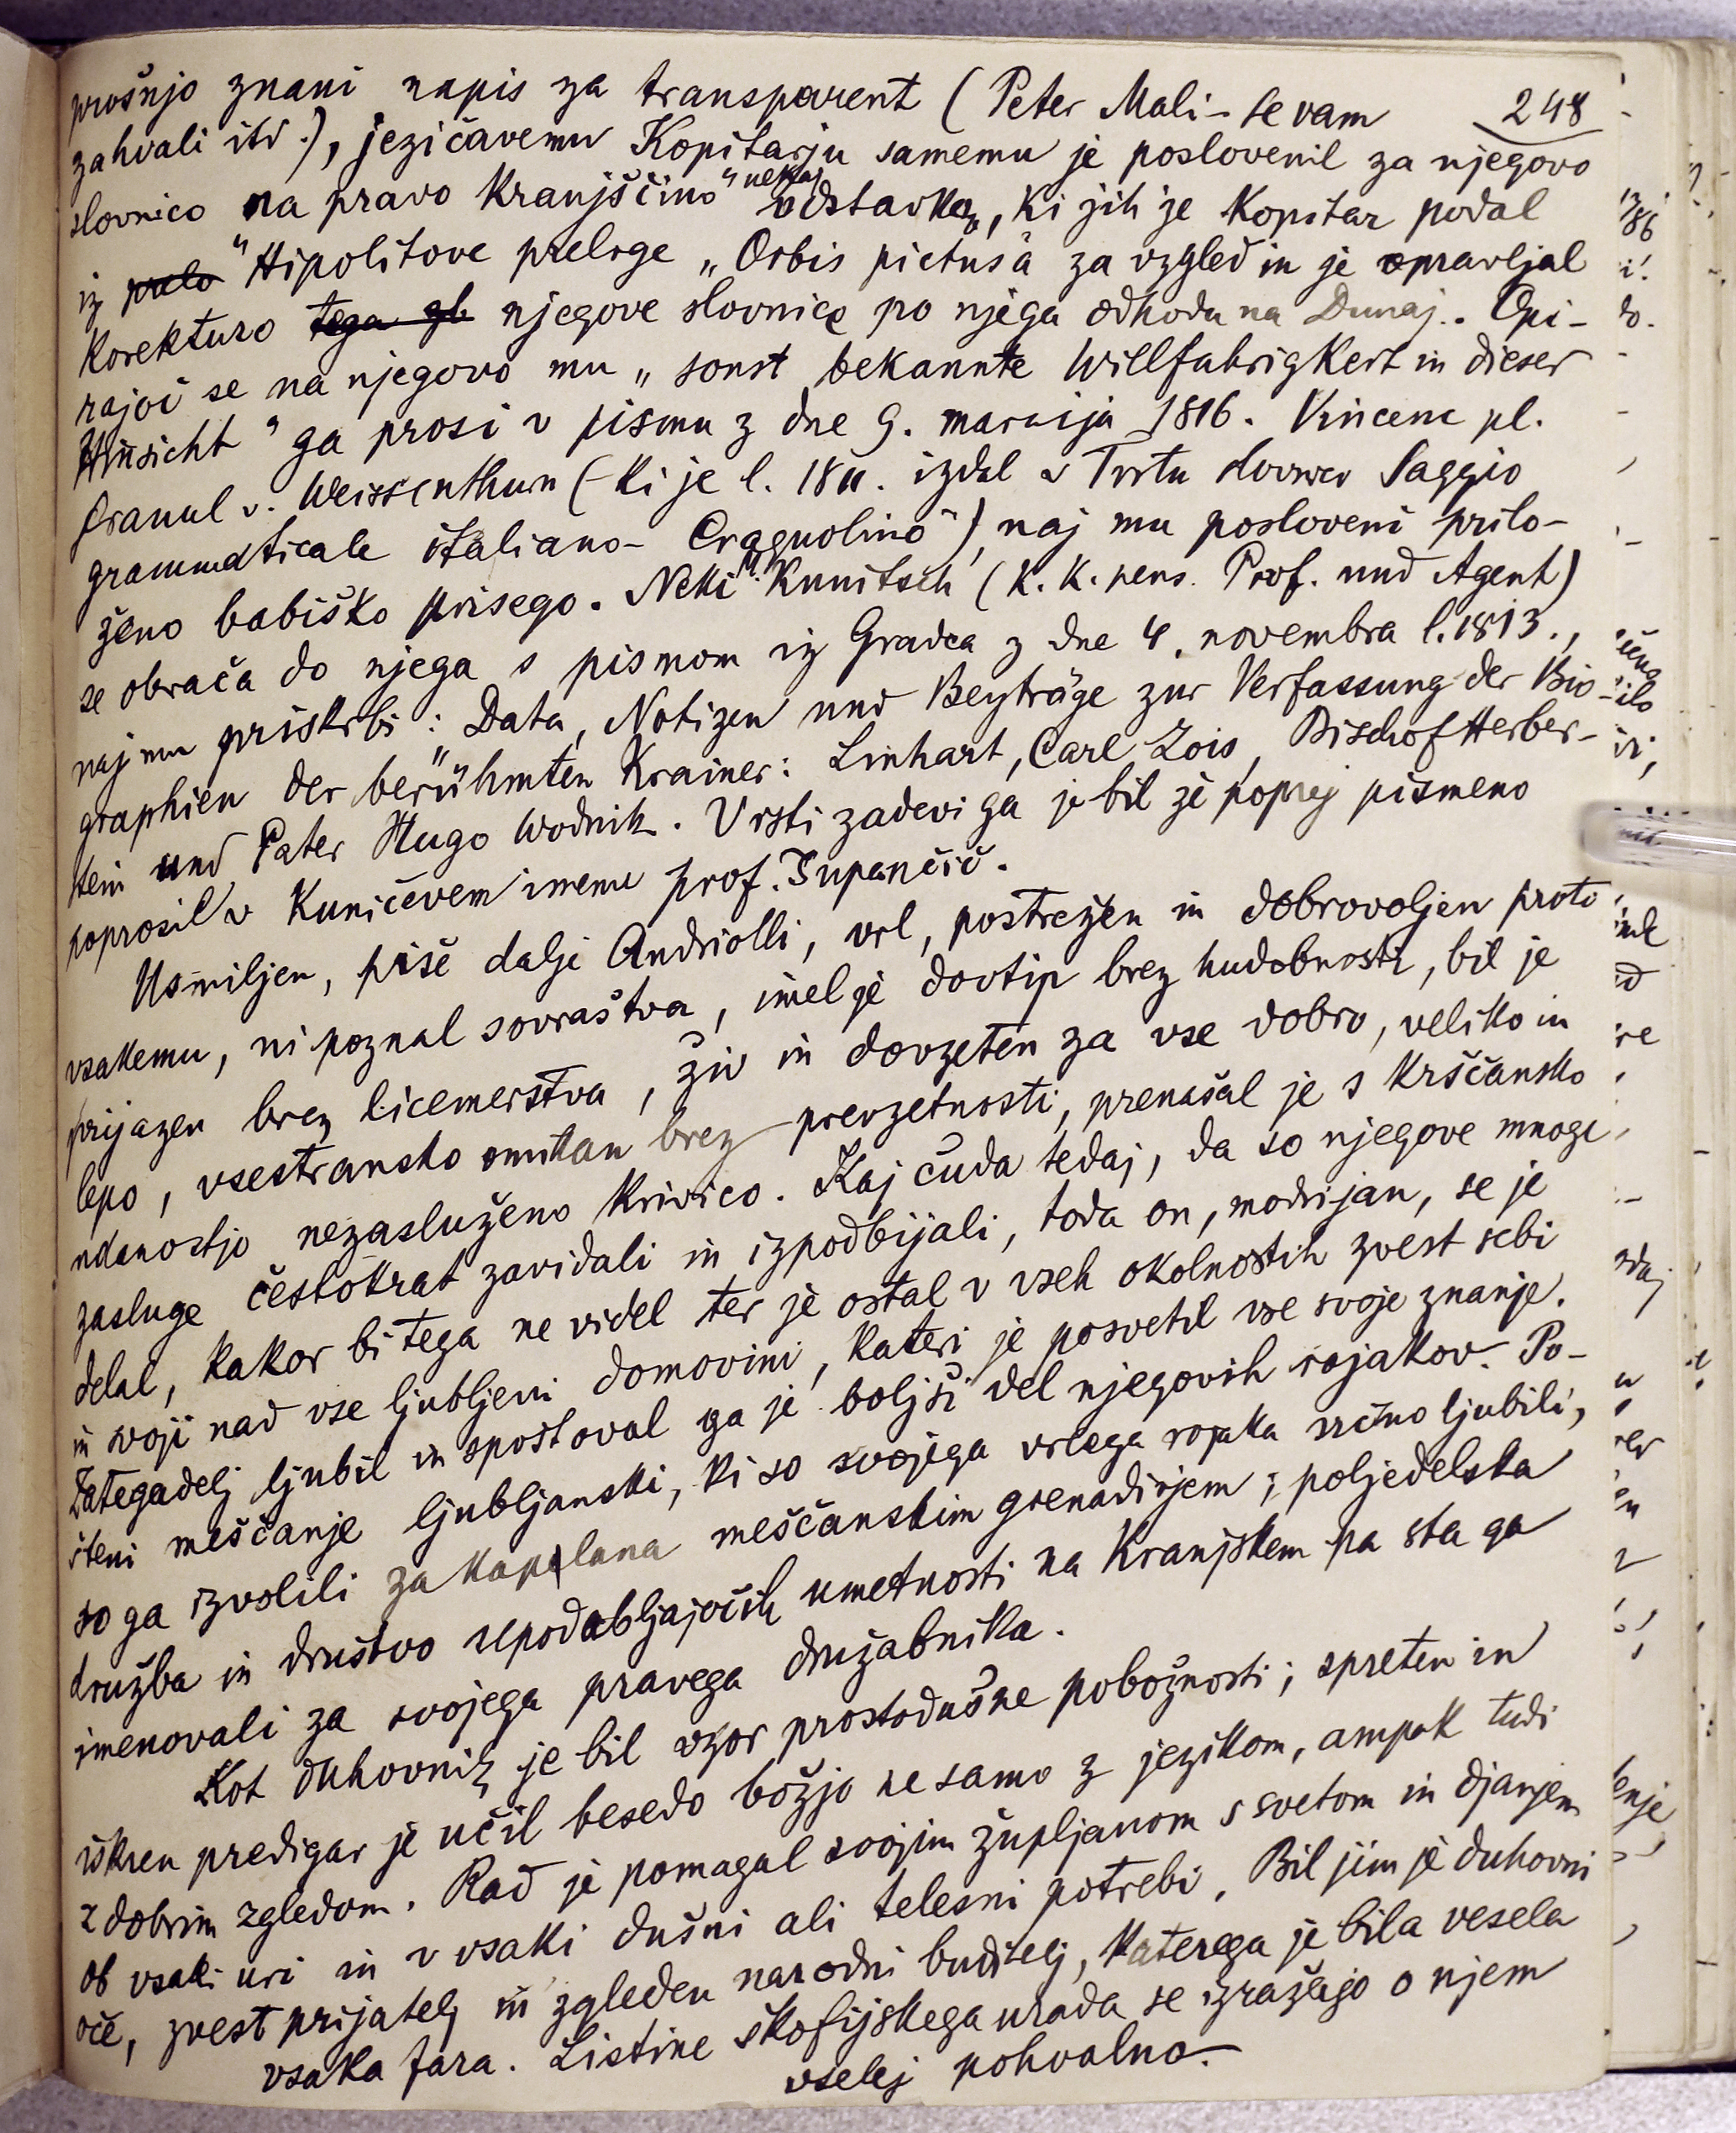 248
prošnjo znani napis za transparent (Peter Mali - se vam
zahvali itd.), jezičavemu Kopitarju samemu je poslovenil za njegovo
slovnico „na pravo kranjščino“ nekaj odstavkov, ki jih je Kopitar podal
iz prelo Hipolitove preloge „Orbis pictusa“ za vzgled in je opravljal
korekturo tega gl. njegove slovnice po njega odhodu na Dunaj. Opi-
rajoč se na njegovo mu „sonst bekannte Willfahrigkeit in dieser
Hinsicht“ ga prosi v pismu z dne 9. marcija 1816. Vincenc pl.
Franul v. Weissenthurn (ki je l. 1811. izdal v Trstu slovnico Saggio
grammaticale italiano-Cragnolino“), naj mu posloveni prilo-
ženo babiško prisego. Neki M. Kunitsch (K. K. pens. Prof. und Agent)
se obrača do njega s pismom iz Gradca z dne 4. novembra l. 1813.,
naj mu priskrbi: „Data, Notizen und Beyträge zur Verfassung der Bio-
graphien der berühmten Krainer: Linhart, Carl Zois, Bischof Herber-
stein und Pater Hugo Wodnik. V isti zadevi ga je bil že poprej pismeno
poprosil v Kuničevem imenu prof. Zupančič.
Usmiljen, piše dalje Andriolli, vrl, postrežen in dobrovoljen proti
vsakemu, ni poznal sovraštva, imel je dovtip brez hudobnosti, bil je
prijazen brez licemerstva, živ in dovzeten za vse dobro, veliko in
lepo, vsestransko omikan brez prevzetnosti, prenašal je s krščansko
udanostjo nezasluženo krivico. Kaj čuda tedaj, da so njegove mnoge
zasluge čestokrat zavidali in izpodbijali, toda on, modrijan, se je
delal, kakor bi tega ne videl ter je ostal v vseh okolnostih zvest sebi
in svoji nad vse ljubljeni domovini, kateri je posvetil vse svoje znanje.
Zategadelj ljubil in spoštoval ga je boljši del njegovih rojakov. Po-
šteni meščanje ljubljanski, ki so svojega vrlega rojaka srčno ljubili,
so ga izvolili za kapelana meščanskim grenadirjem; poljedelska
družba in društvo upodabljajočih umetnosti na Kranjskem pa sta ga
imenovali za svojega pravega družabnika.
Kot duhovnik je bil vzor prostodušne pobožnosti; spreten in
iskren predigar je učil besedo božjo ne samo z jezikom, ampak tudi
z dobrim zgledom. Rad je pomagal svojim župljanom s svetom in djanjem
ob vsaki uri in v vsaki dušni ali telesni potrebi. Bil jim je duhovni
oče, zvest prijatelj in zgleden narodni buditelj, katerega je bila vesela
vsaka fara. Listine škofijskega urada se izražajo o njem
vselej pohvalno.